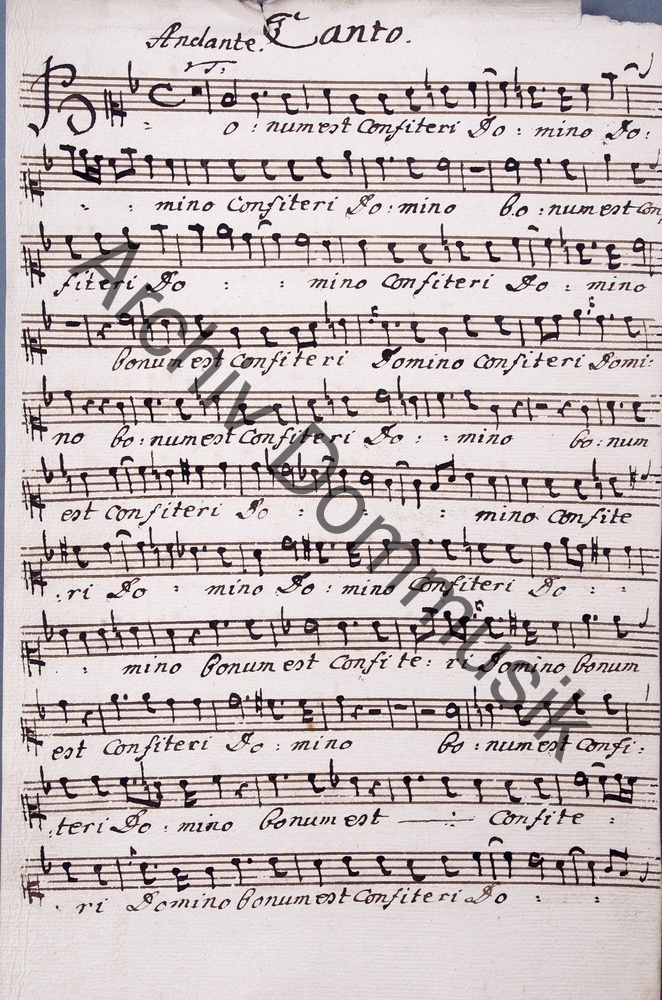 Andante. Canto.
B o : num est Confiteri Do : mino Do :
: : mino Confiteri Do : mino bo : num est Con
fiteri Do : : mino Confiteri Do : mino
bonum est Confiteri Domino Confiteri Domi :
no bo : num est Confiteri Do : : mino bo : num
est Confiteri Do : : : : mino Confite
: ri Do : mino Do : mino Confiteri Do : :
: mino bonum est Confite : ri Domino bonum
est Confiteri Do : mino bo : num est Confi :
: teri Do : mino bonum est — : Confite :
. ri Domino bonum est Confiteri Do : : :
Archiv Dommusik